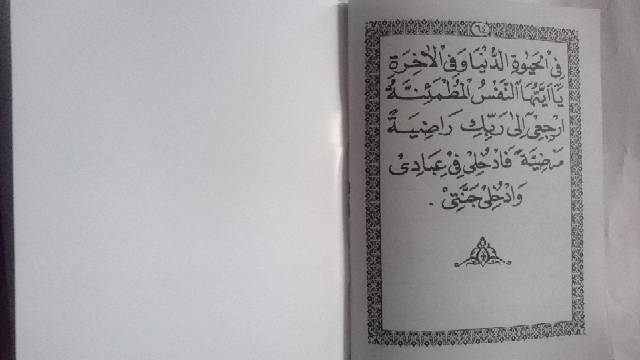 ٦٤
فِى الْحَيٰوةِ الدُّنْيَا وَفِى الْاٰخِرَةِ
يَا اَيَّتُهَا النَّفْسُ الْمُطْمَئِنَّةُ
ارْجِعِىْ اِلٰى رَبِّكِ رَاضِيَةً
مَرْضِيَّةً فَادْخُلِىْ فِىْ عِبَادِىْ
وَادْخُلِىْ جَنَّتِىْ .